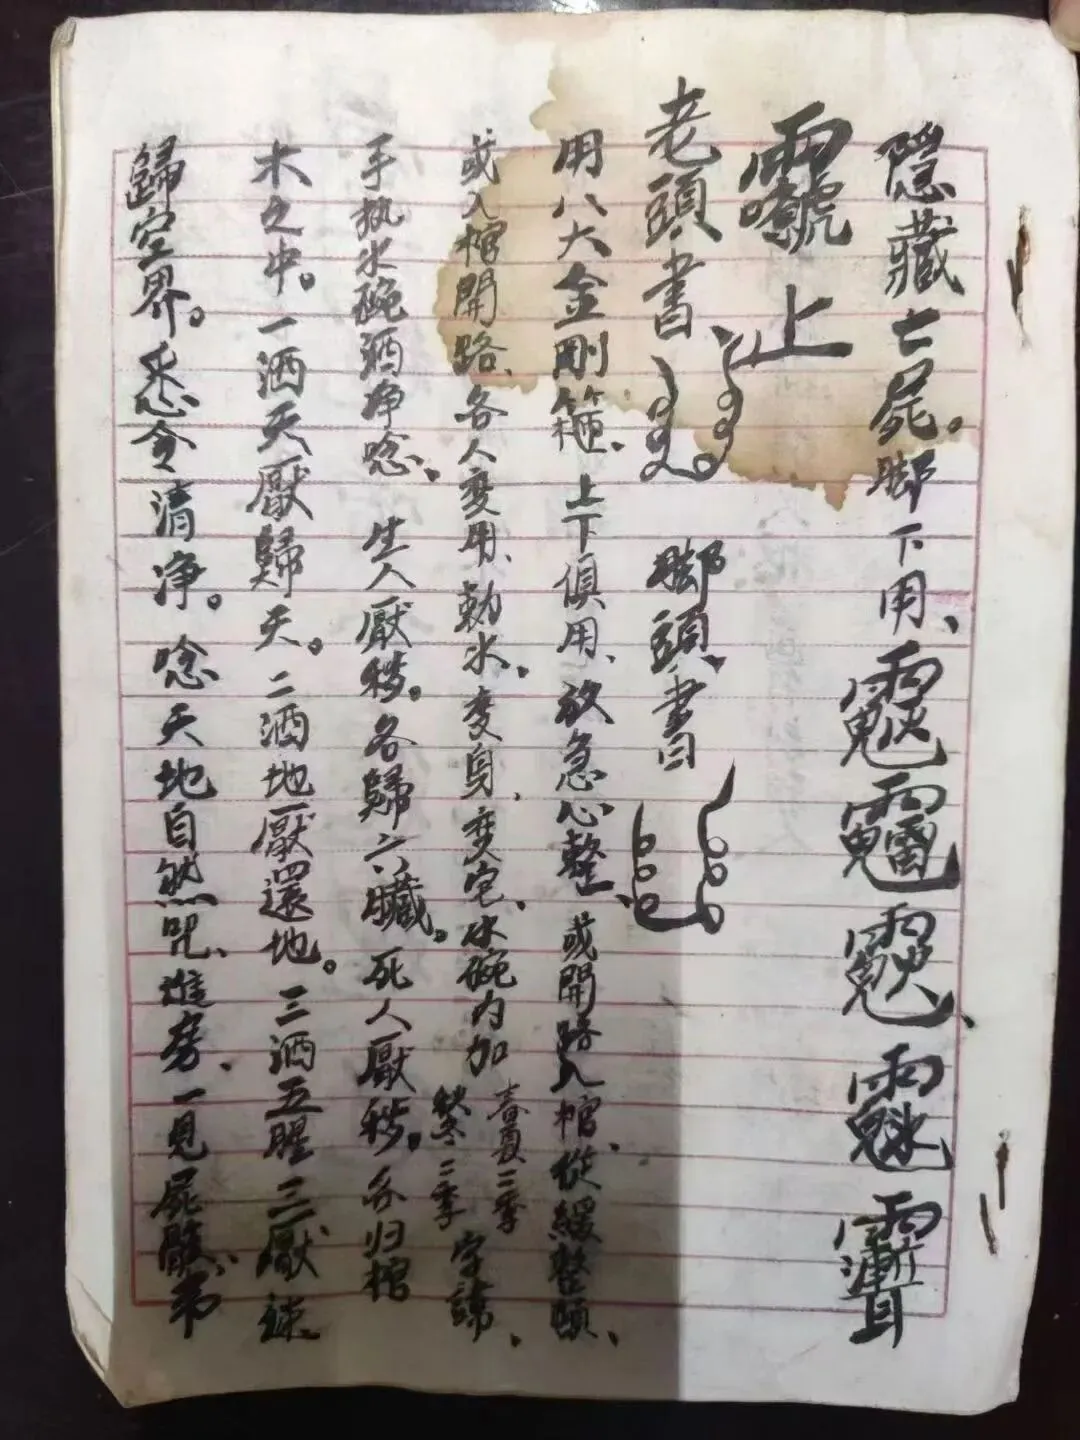 隱藏亡屍。脚下用、
上
老頭書、 脚頭書
用八大金剛箍、上下俱用、放急心整、或開路入棺、從緩整頤、
或入棺開路、各人变用、勅水。变身、变宅、水碗内加春夏二季秋冬二季字諱、
手执水碗洒净唸、 生人厭穢。各歸六臟。死人厭穢。各归棺
木之中。一洒天厭歸天。二洒地厭還地。三洒五腥三厭速
歸空界。悉令清净。唸天地自然咒、進房、一見屍骸、